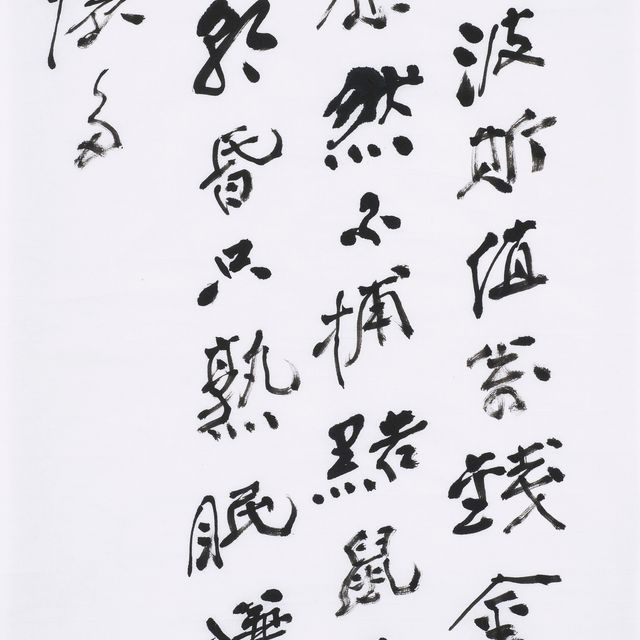 波斯值萬錢金
然不捕黠鼠
昏只熟眠